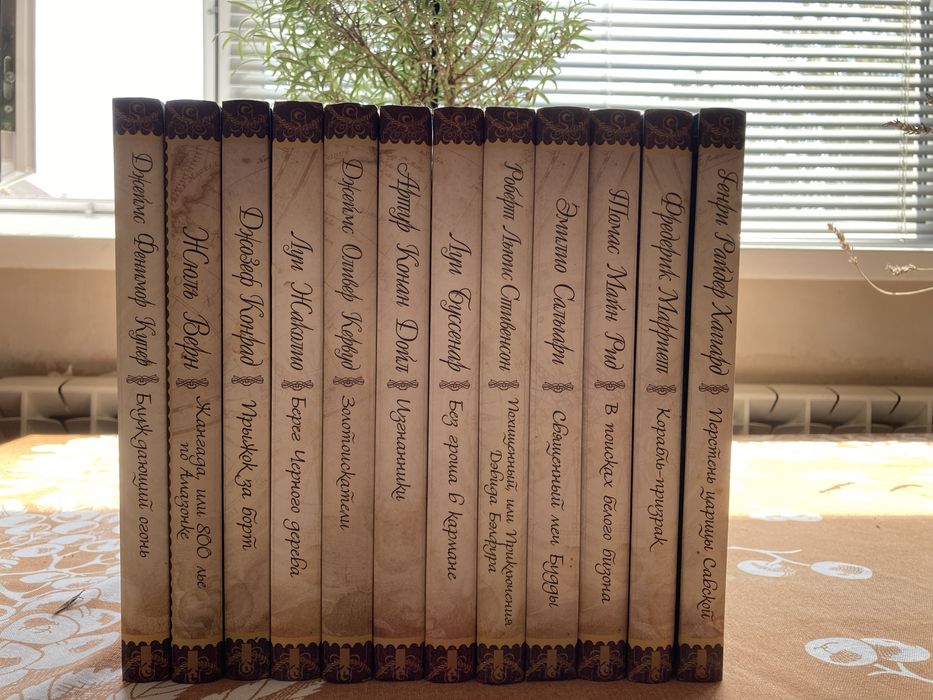 Джеймс Фенимор Купер Блуждающий огонь
Жюль Верн Жангада, или 800 лье
по Амазонке
Джозеф Конрад Прыжок за борт
Луи Жаколио Берег Черного дерева
Джеймс Оливер Кервуд Золотоискатели
Артур Конан Дойл Изгнанники
Луи Буссенар Без гроша в кармане
Роберт Льюис Стивенсон Похищенный, или Приключения
Дэвида Бэлфура
Эмилио Сальгари Священный меч Будды
Томас Майн Рид В поисках белого бизона
Фредерик Марриет Корабль-призрак
Генри Райдер Хаггард Перстень царицы Савской